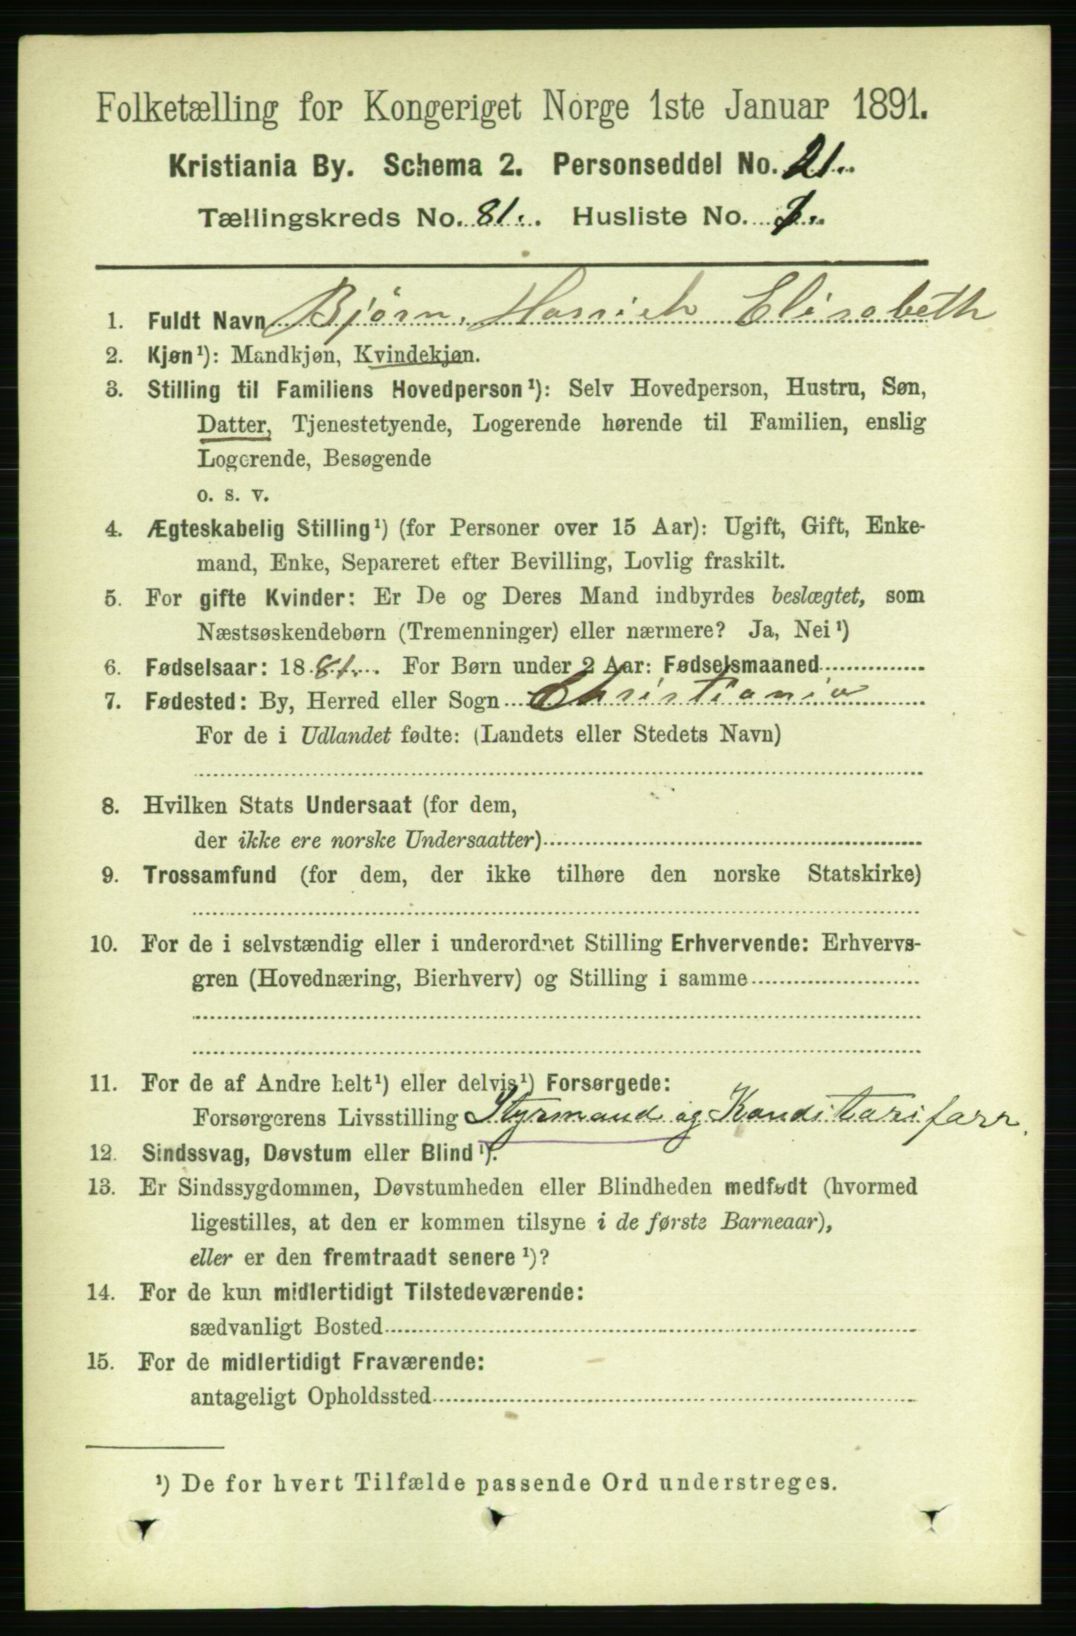 Folketælling for Kongeriget Norge 1ste Januar 1891.
Kristiania By. Schema 2. Personseddel No. 21.
Tællingskreds No. 81. Husliste No.
1. Fuldt Navn Bjørn, Harrieh Elisabeth
2. Kjøn¹): Mandkjøn, Kvindekjøn.
3. Stilling til Familiens Hovedperson¹): Selv Hovedperson, Hustru, Søn,
Datter, Tjenestetyende, Logerende hørende til Familien, enslig
Logerende, Besøgende
o. s. v.
4. Ægteskabelig Stilling¹) (for Personer over 15 Aar): Ugift, Gift, Enke-
mand, Enke, Separeret efter Bevilling, Lovlig fraskilt.
5. For gifte Kvinder: Er De og Deres Mand indbyrdes beslægtet, som
Næstsøskendebørn (Tremenninger) eller nærmere? Ja, Nei¹)
6. Fødselsaar: 1881. For Børn under 2 Aar: Fødselsmaaned
7. Fødested: By, Herred eller Sogn Christiania
For de i Udlandet fødte: (Landets eller Stedets Navn)
8. Hvilken Stats Undersaat (for dem,
der ikke ere norske Undersaatter)
9. Trossamfund (for dem, der ikke tilhøre den norske Statskirke)
10. For de i selvstændig eller i underordnet Stilling Erhvervende: Erhvervs-
gren (Hovednæring, Bierhverv) og Stilling i samme
11. For de af Andre helt¹) eller delvis¹) Forsørgede:
Forsørgerens Livsstilling Styrmand og Konditorifarr.
12. Sindssvag, Døvstum eller Blind¹).
13. Er Sindssygdommen, Døvstumheden eller Blindheden medfødt (hvormed
ligestilles, at den er kommen tilsyne i de første Barneaar),
eller er den fremtraadt senere¹)?
14. For de kun midlertidigt Tilstedeværende:
sædvanligt Bosted
15. For de midlertidigt Fraværende:
antageligt Opholdssted
¹) De for hvert Tilfælde passende Ord understreges.